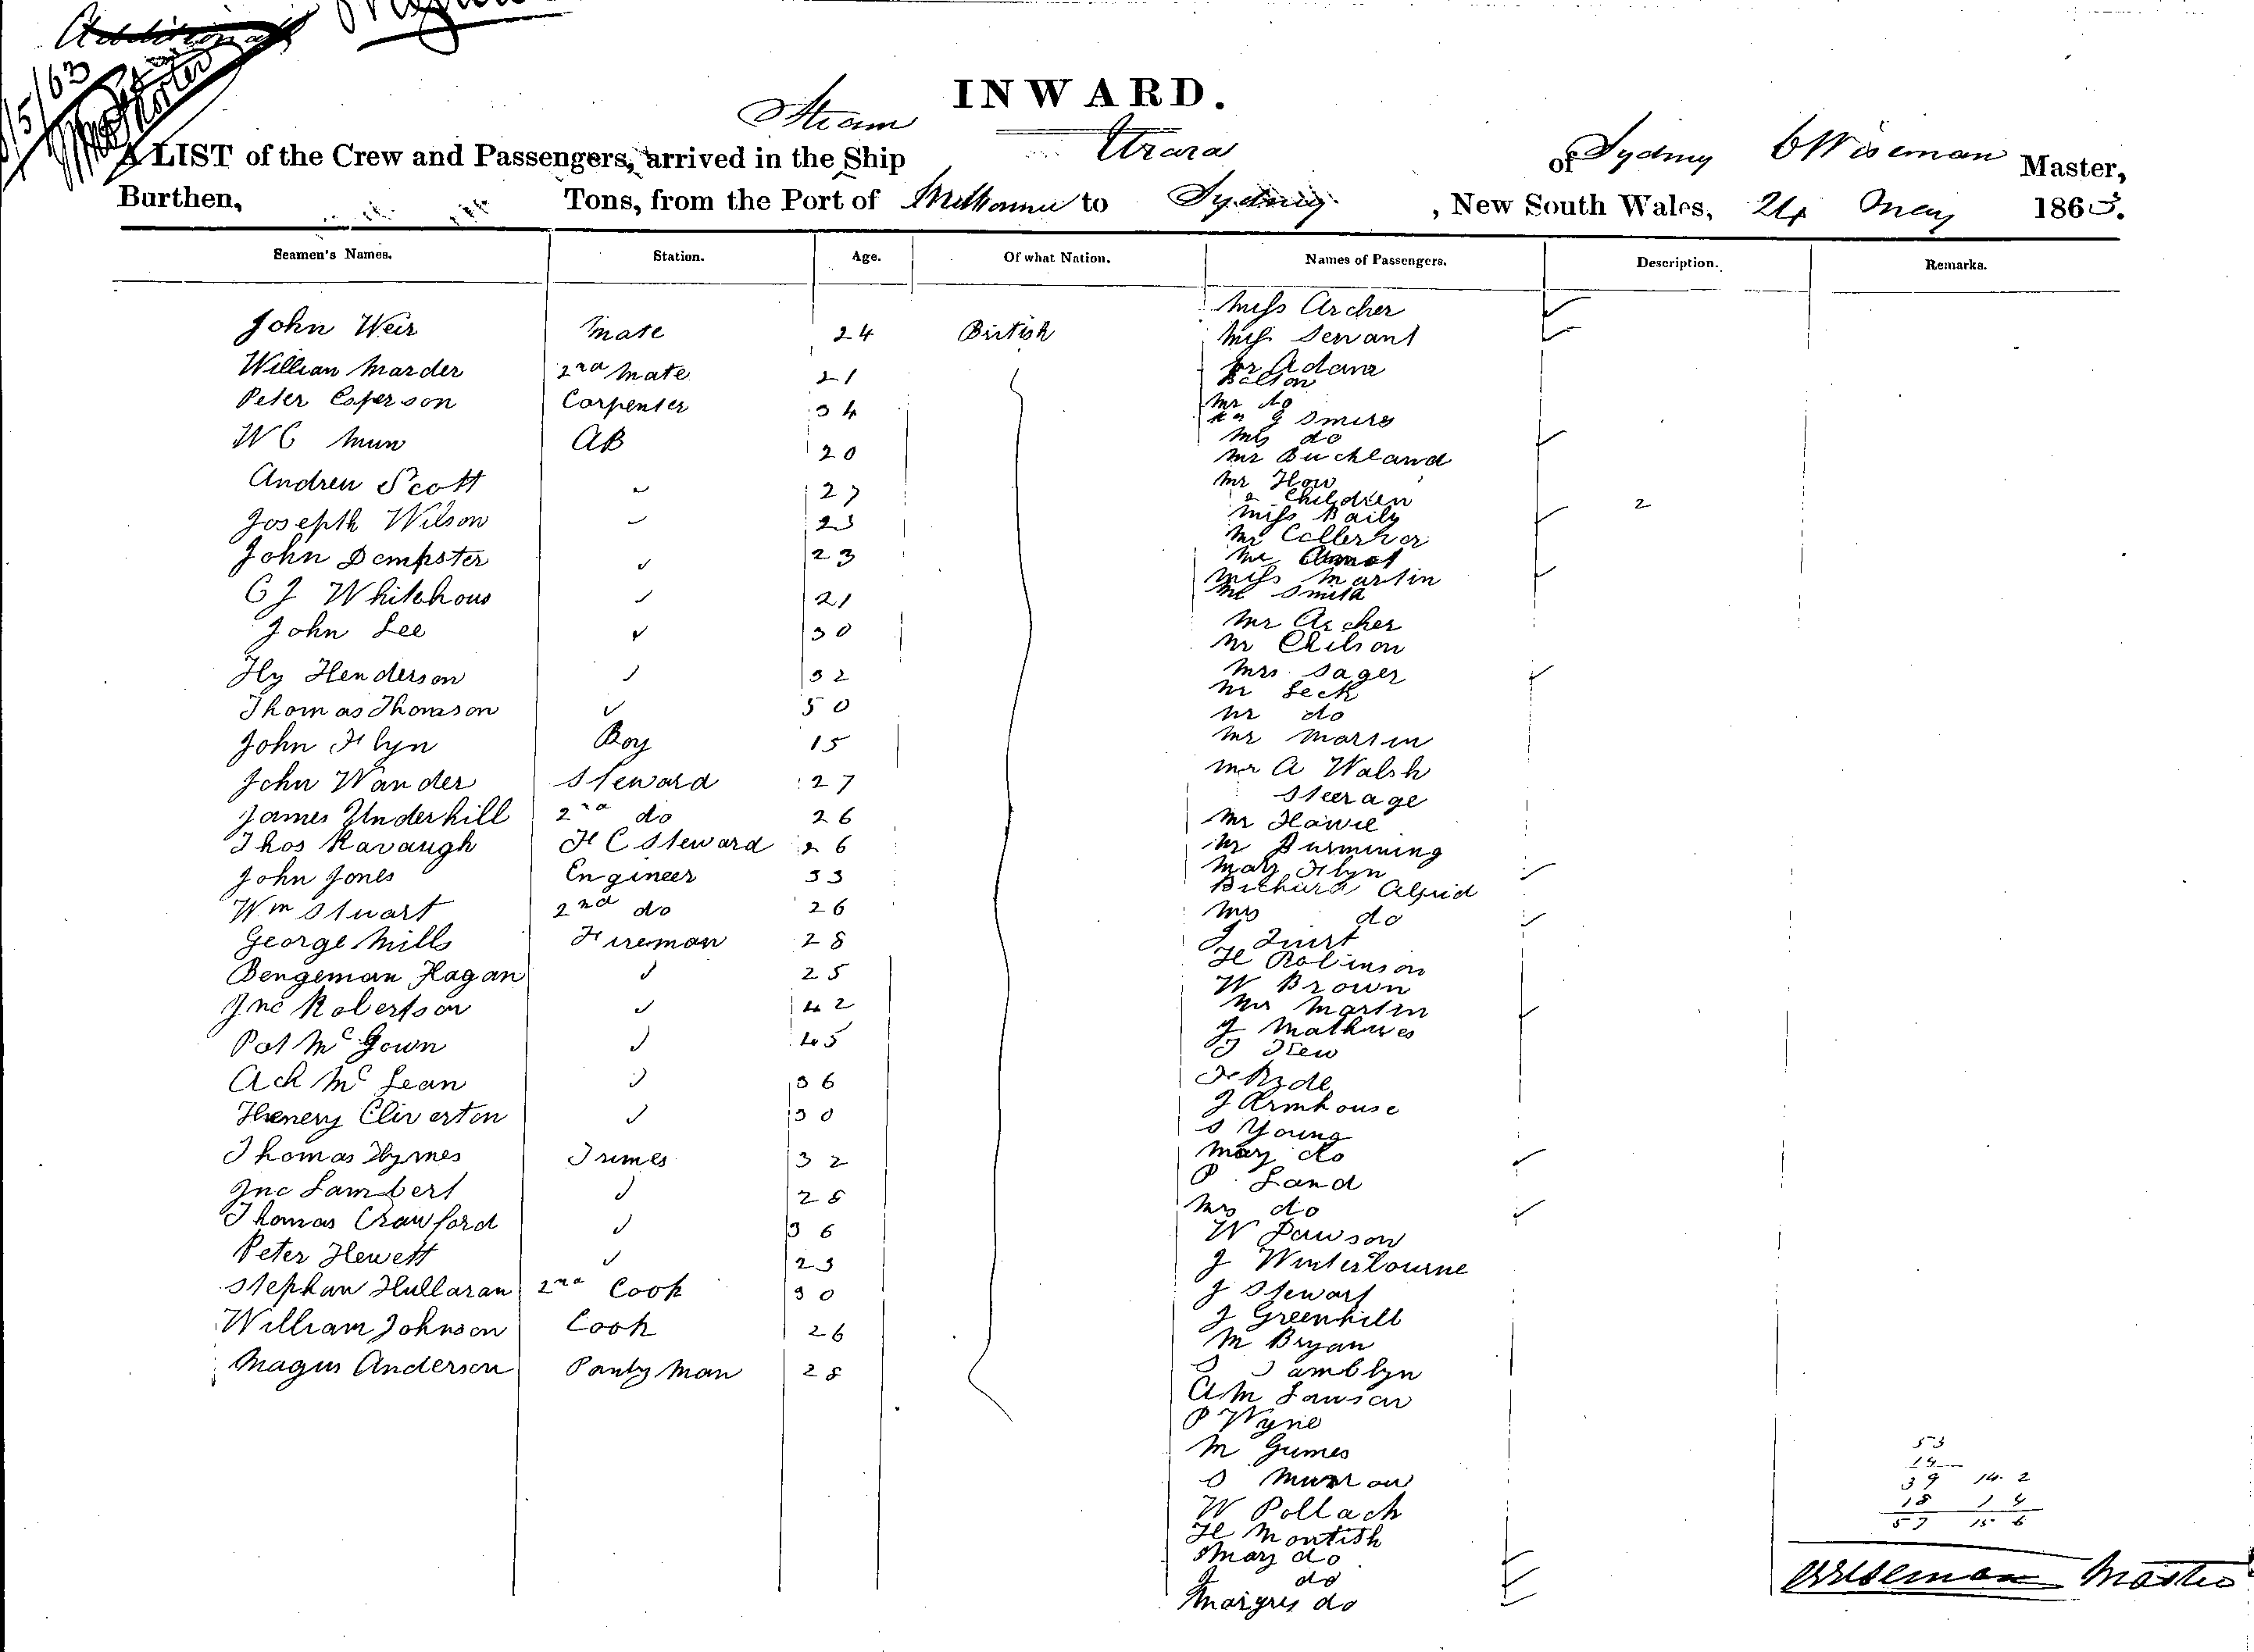 Additional
/5/63
INWARD.
Steam
A LIST of the Crew and Passengers, arrived in the Ship Urara of Sydney C Wiseman Master,
Burthen, Tons, from the Port of Melbourne to Sydney , New South Wales, 24 May 1863.
Seamen's Names. Station. Age. Of what Nation. Names of Passengers. Description. Remarks.
John Weir mate 24 British
William Marder 2nd mate 21
Peter Esperson Carpenter 34
W C Mun AB 20
Andrew Scott 27
Josepth Wilson 23
John Dempster 23
C J Whitehous 21
John Lee 30
Hy Henderson 32
Thomas Thomson 50
John Flyn Boy 15
John Wander Steward 27
James Underhill 2nd do 26
Thos Kavaugh F C Steward 26
John Jones Engineer 33
Wm Stuart 2nd do 26
George Mills Fireman 28
Bengeman Hagan 25
Jno Robertson 42
Pat Mc Gown 45
Ach Mc Lean 36
Henery Cliverton 30
Thomas Hyrnes Trimes 32
Jno Lambert 28
Thomas Crawford 36
Peter Hewett 23
Stephan Hullaran 2nd Cook 30
William Johnson Cook 26
Magus Anderson Pantry Man 28
Miss Archer
Mrs Servant
Dr Adam
Belton
Mr do
G Smire
Mrs do
Mr Buckland
Mr How
2 Children 2
Miss Baily
Mr
Mr
Miss Martin
Mr Smith
Mr Archer
Mr Chilson
Mrs Sager
Mr Leck
Mr do
Mr Martin
Mr A Walsh
Steerage
Mr Hawie
Mr Burmining
Mary Flyn
Richard Alfrid
Mrs do
J
H Robinson
W Brown
Mrs Martin
J Mathwes
J Drew
F Ryde
J Armhouse
S Young
Mary do
P Land
Mrs do
W Dawson
J Winterbourne
J Stewart
J Greenhill
M Bryan
S Tamblyn
A M Lawson
P Wyne
M Gumes
S Murrow
W Pollach
H Montish
Mary do
J do
Margres do
53
14
39 14. 2
18 1 4
57 15. 6
CWiseman Master